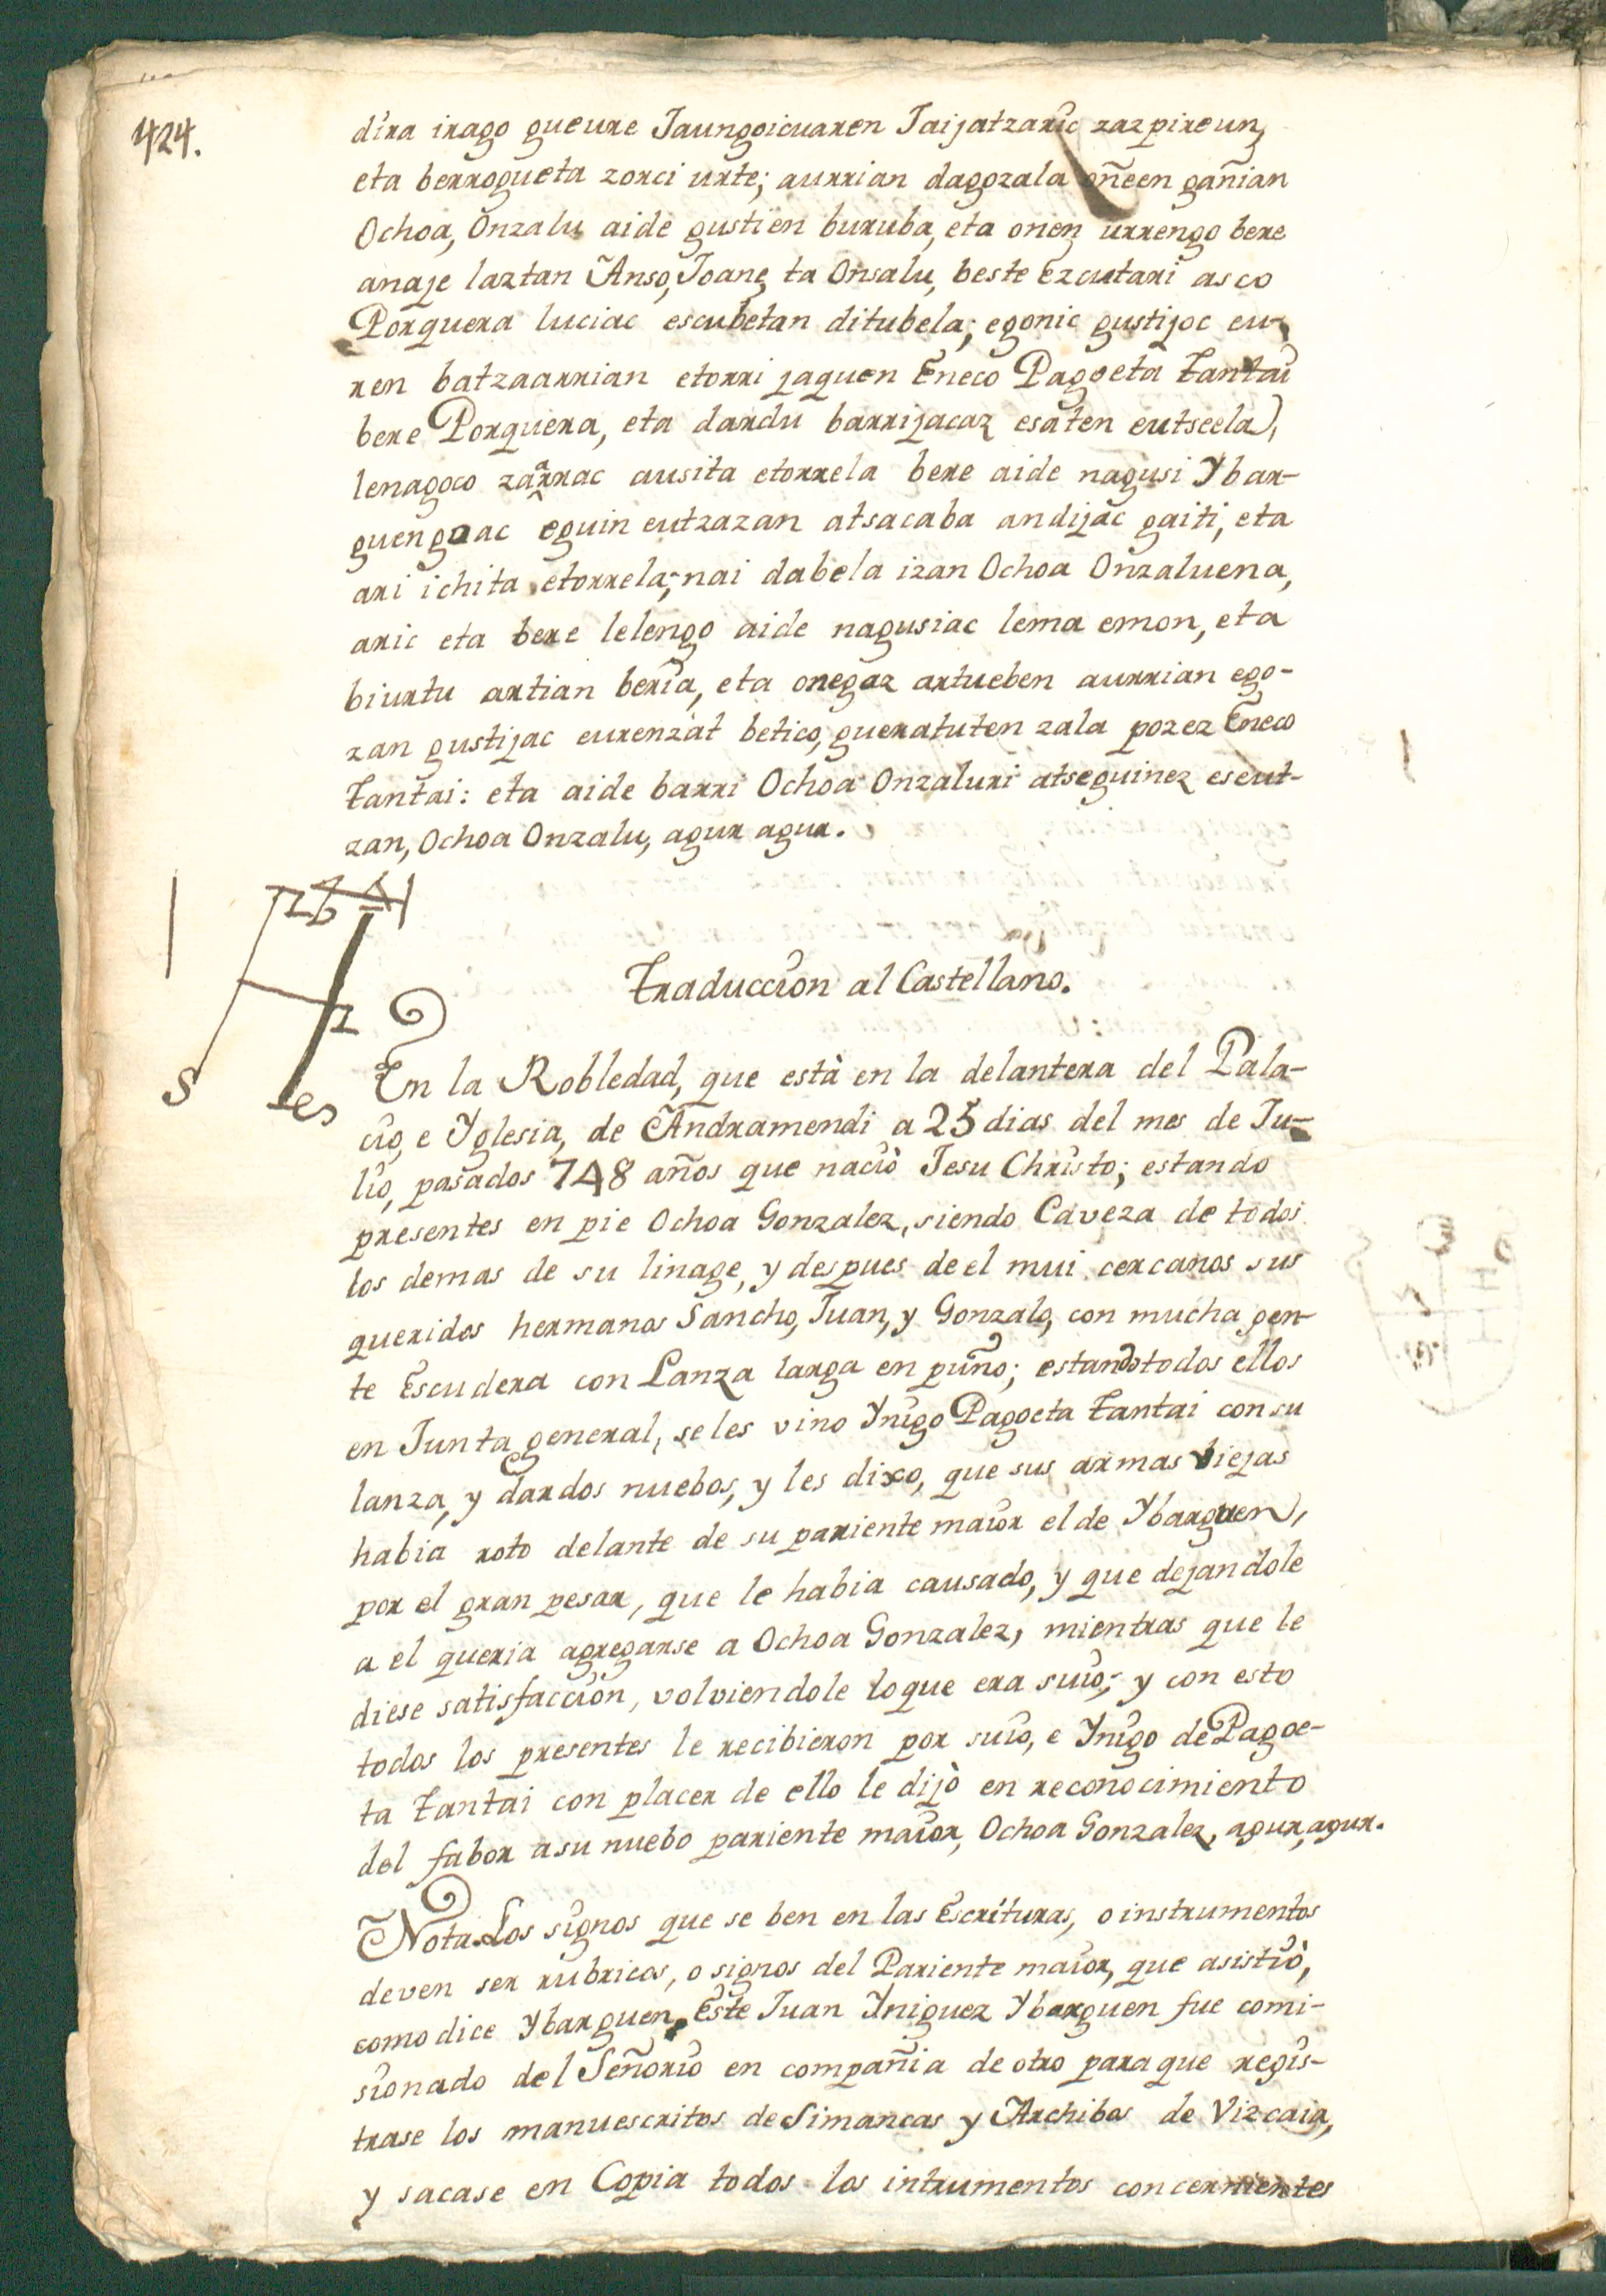 424.
dira irago gueure Jaungoicuaren Jaijatzaric zazpireun,
eta berrogueta zorci urte; aurrian dagozala oñeen gañian
Ochoa, Onzalu aide gustien buruba, eta onen urrengo bere
anaje laztan Anso, Joane, ta Onsalu, beste Ezcutari asco
Porquera luciac escubetan ditubela; egonic gustijoc eu-
ren batzaarrian etorri jaquen Eneco Pagoeta Tantai
bere Porquera, eta dardu barrijacaz esaten eutseela,
lenagoco zaarrac ausita etorrela bere aide nagusi Ybar-
guengoac eguin eutzazan atsacaba andijac gaiti, eta
ari ichita etorrela; nai dabela izan Ochoa Onzaluena,
aric eta bere lelengo aide nagusiac lema emon, eta
biurtu artian beria, eta onegaz artueben aurrian ego-
zan gustijac eurenzat betico, gueratuten zala pozez Eneco
Tantai: eta aide barri Ochoa Onzaluri atseguinez eseut-
zan, Ochoa Onzalu, agur agur.
Traduccion al Castellano.
En la Robledad, que està en la delantera del Pala-
cio, e Yglesia, de Andramendi a 25 dias del mes de Ju-
lio, pasados 748 años que naciò Jesu Christo; estando
presentes en pie Ochoa Gonzalez, siendo Caveza de todos
los demas de su linage, y despues de el mui cercanos sus
queridos hermanos Sancho, Juan, y Gonzalo, con mucha gen-
te Escudera con Lanza larga en puño; estando todos ellos
en Junta general, se les vino Ynigo Pagoeta Tantai con su
lanza, y dardos nuebos, y les dixo, que sus armas biejas
habia roto delante de su pariente maior el de Ybarguen,
por el gran pesar, que le habia causado, y que dejandole
a el queria agregarse a Ochoa Gonzalez, mientras que le
diese satisfaccion, volviendole loque era suio; y con esto
todos los presentes le recibieron por suio, e Ynigo de Pagoe-
ta Tantai con placer de ello le dijò en reconocimiento
del fabor asu nuebo pariente maior, Ochoa Gonzalez, agur, agur.
Nota. Los signos que se ben en las Escrituras, o instrumentos
deven ser rubricas, o signos del Pariente maior, que asistiò,
como dice Ybarguen. Este Juan Yniguez Ybarguen fue comi-
sionado del Señorio en compañia de otro paraque regis-
trase los manuescritos de Simancas y Archibos de Vizcaia,
y sacase en Copia todos los intrumentos concernientes